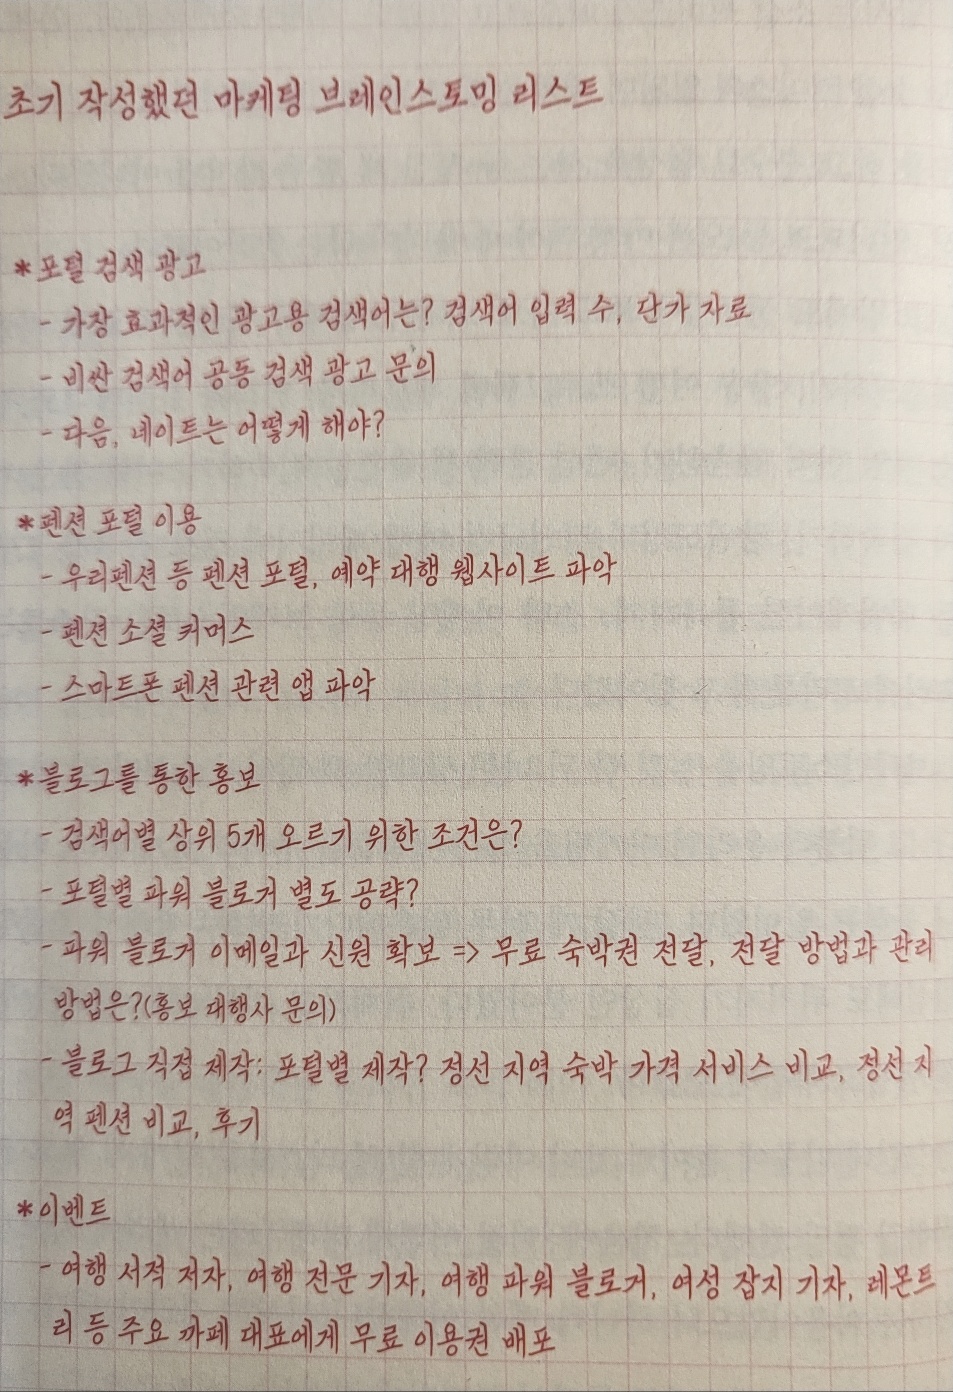 초기 작성했던 마케팅 브레인스토밍 리스트
*포털 검색 광고
- 가장 효과적인 광고용 검색어는? 검색어 입력 수, 단가 자료
- 비싼 검색어 공동 검색 광고 문의
- 다음, 네이트는 어떻게 해야?
*펜션 포털 이용
- 우리펜션 등 펜션 포털, 예약 대행 웹사이트 파악
- 펜션 소셜 커머스
- 스마트폰 펜션 관련 앱 파악
*블로그를 통한 홍보
- 검색어별 상위 5개 오르기 위한 조건은?
- 포털별 파워 블로거 별도 공략?
- 파워 블로거 이메일과 신원 확보 => 무료 숙박권 전달, 전달 방법과 관리
방법은?(홍보 대행사 문의)
- 블로그 직접 제작: 포털별 제작? 정선 지역 숙박 가격 서비스 비교, 정선 지
역 펜션 비교, 후기
*이벤트
- 여행 서적 저자, 여행 전문 기자, 여행 파워 블로거, 여성 잡지 기자, 레몬트
리 등 주요 까페 대표에게 무료 이용권 배포